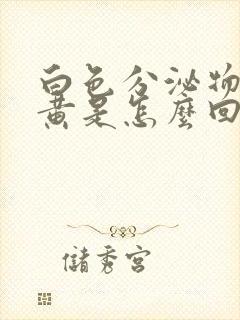 白色分泌物
黄是怎麼回
儲秀宮